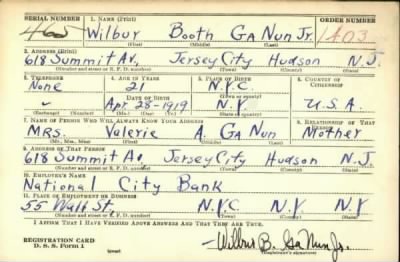 SERIAL NUMBER 1. NAME (Print) ORDER NUMBER
Wilbur Booth GaNun Jr. 1403
(First) (Middle) (Last)
2. ADDRESS (Print)
618 Summit Av, Jersey City Hudson N.J.
(Number and street or R. F. D. number) (Town) (County) (State)
3. TELEPHONE 4. AGE IN YEARS 5. PLACE OF BIRTH 6. COUNTRY OF CITIZENSHIP
None 21 N.Y.C.
DATE OF BIRTH (Town or county)
Apr. 28-1919 N.Y. U.S.A.
(Mo.) (Day) (Yr.) (State or country)
7. NAME OF PERSON WHO WILL ALWAYS KNOW YOUR ADDRESS 8. RELATIONSHIP OF THAT PERSON
MRS. Valerie A. GaNun Mother
(Mr., Mrs., Miss) (First) (Middle) (Last)
9. ADDRESS OF THAT PERSON
618 Summit Av, Jersey City Hudson N.J.
(Number and street or R. F. D. number) (Town) (County) (State)
10. EMPLOYER'S NAME
National City Bank
11. PLACE OF EMPLOYMENT OR BUSINESS
55 Wall St. N.Y.C N.Y N.Y
(Number and street or R. F. D. number) (Town) (County) (State)
I AFFIRM THAT I HAVE VERIFIED ABOVE ANSWERS AND THAT THEY ARE TRUE.
REGISTRATION CARD
D. S. S. Form 1 (over) Wilbur B. GaNun Jr.
(Registrant's signature)